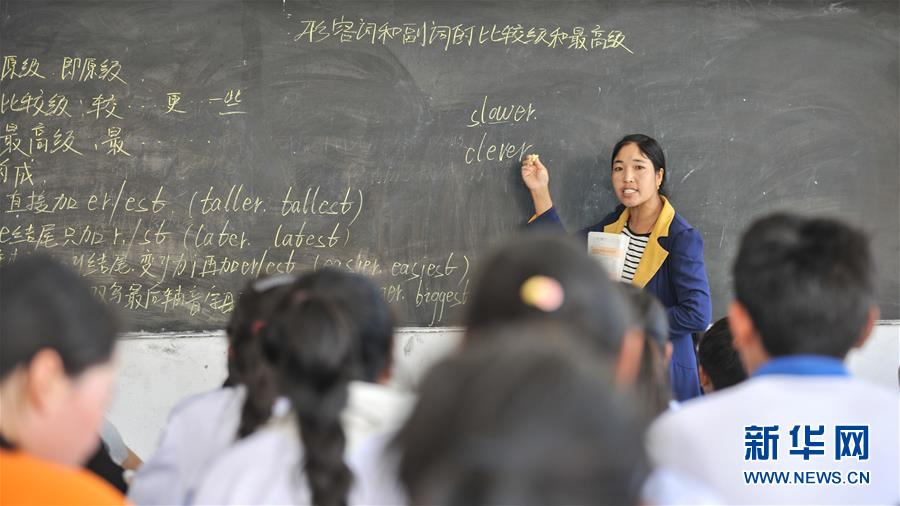 形容词和副词的比较级和最高级
原级 即原级
比较级:较…更…一些
最高级,最…
构成
直接加er/est. (taller. tallest)
e结尾只加r./st (later. latest)
结尾.变 再加er/est easiest)
双写最后 biggest
slower.
clever.
新华网
WWW.NEWS.CN